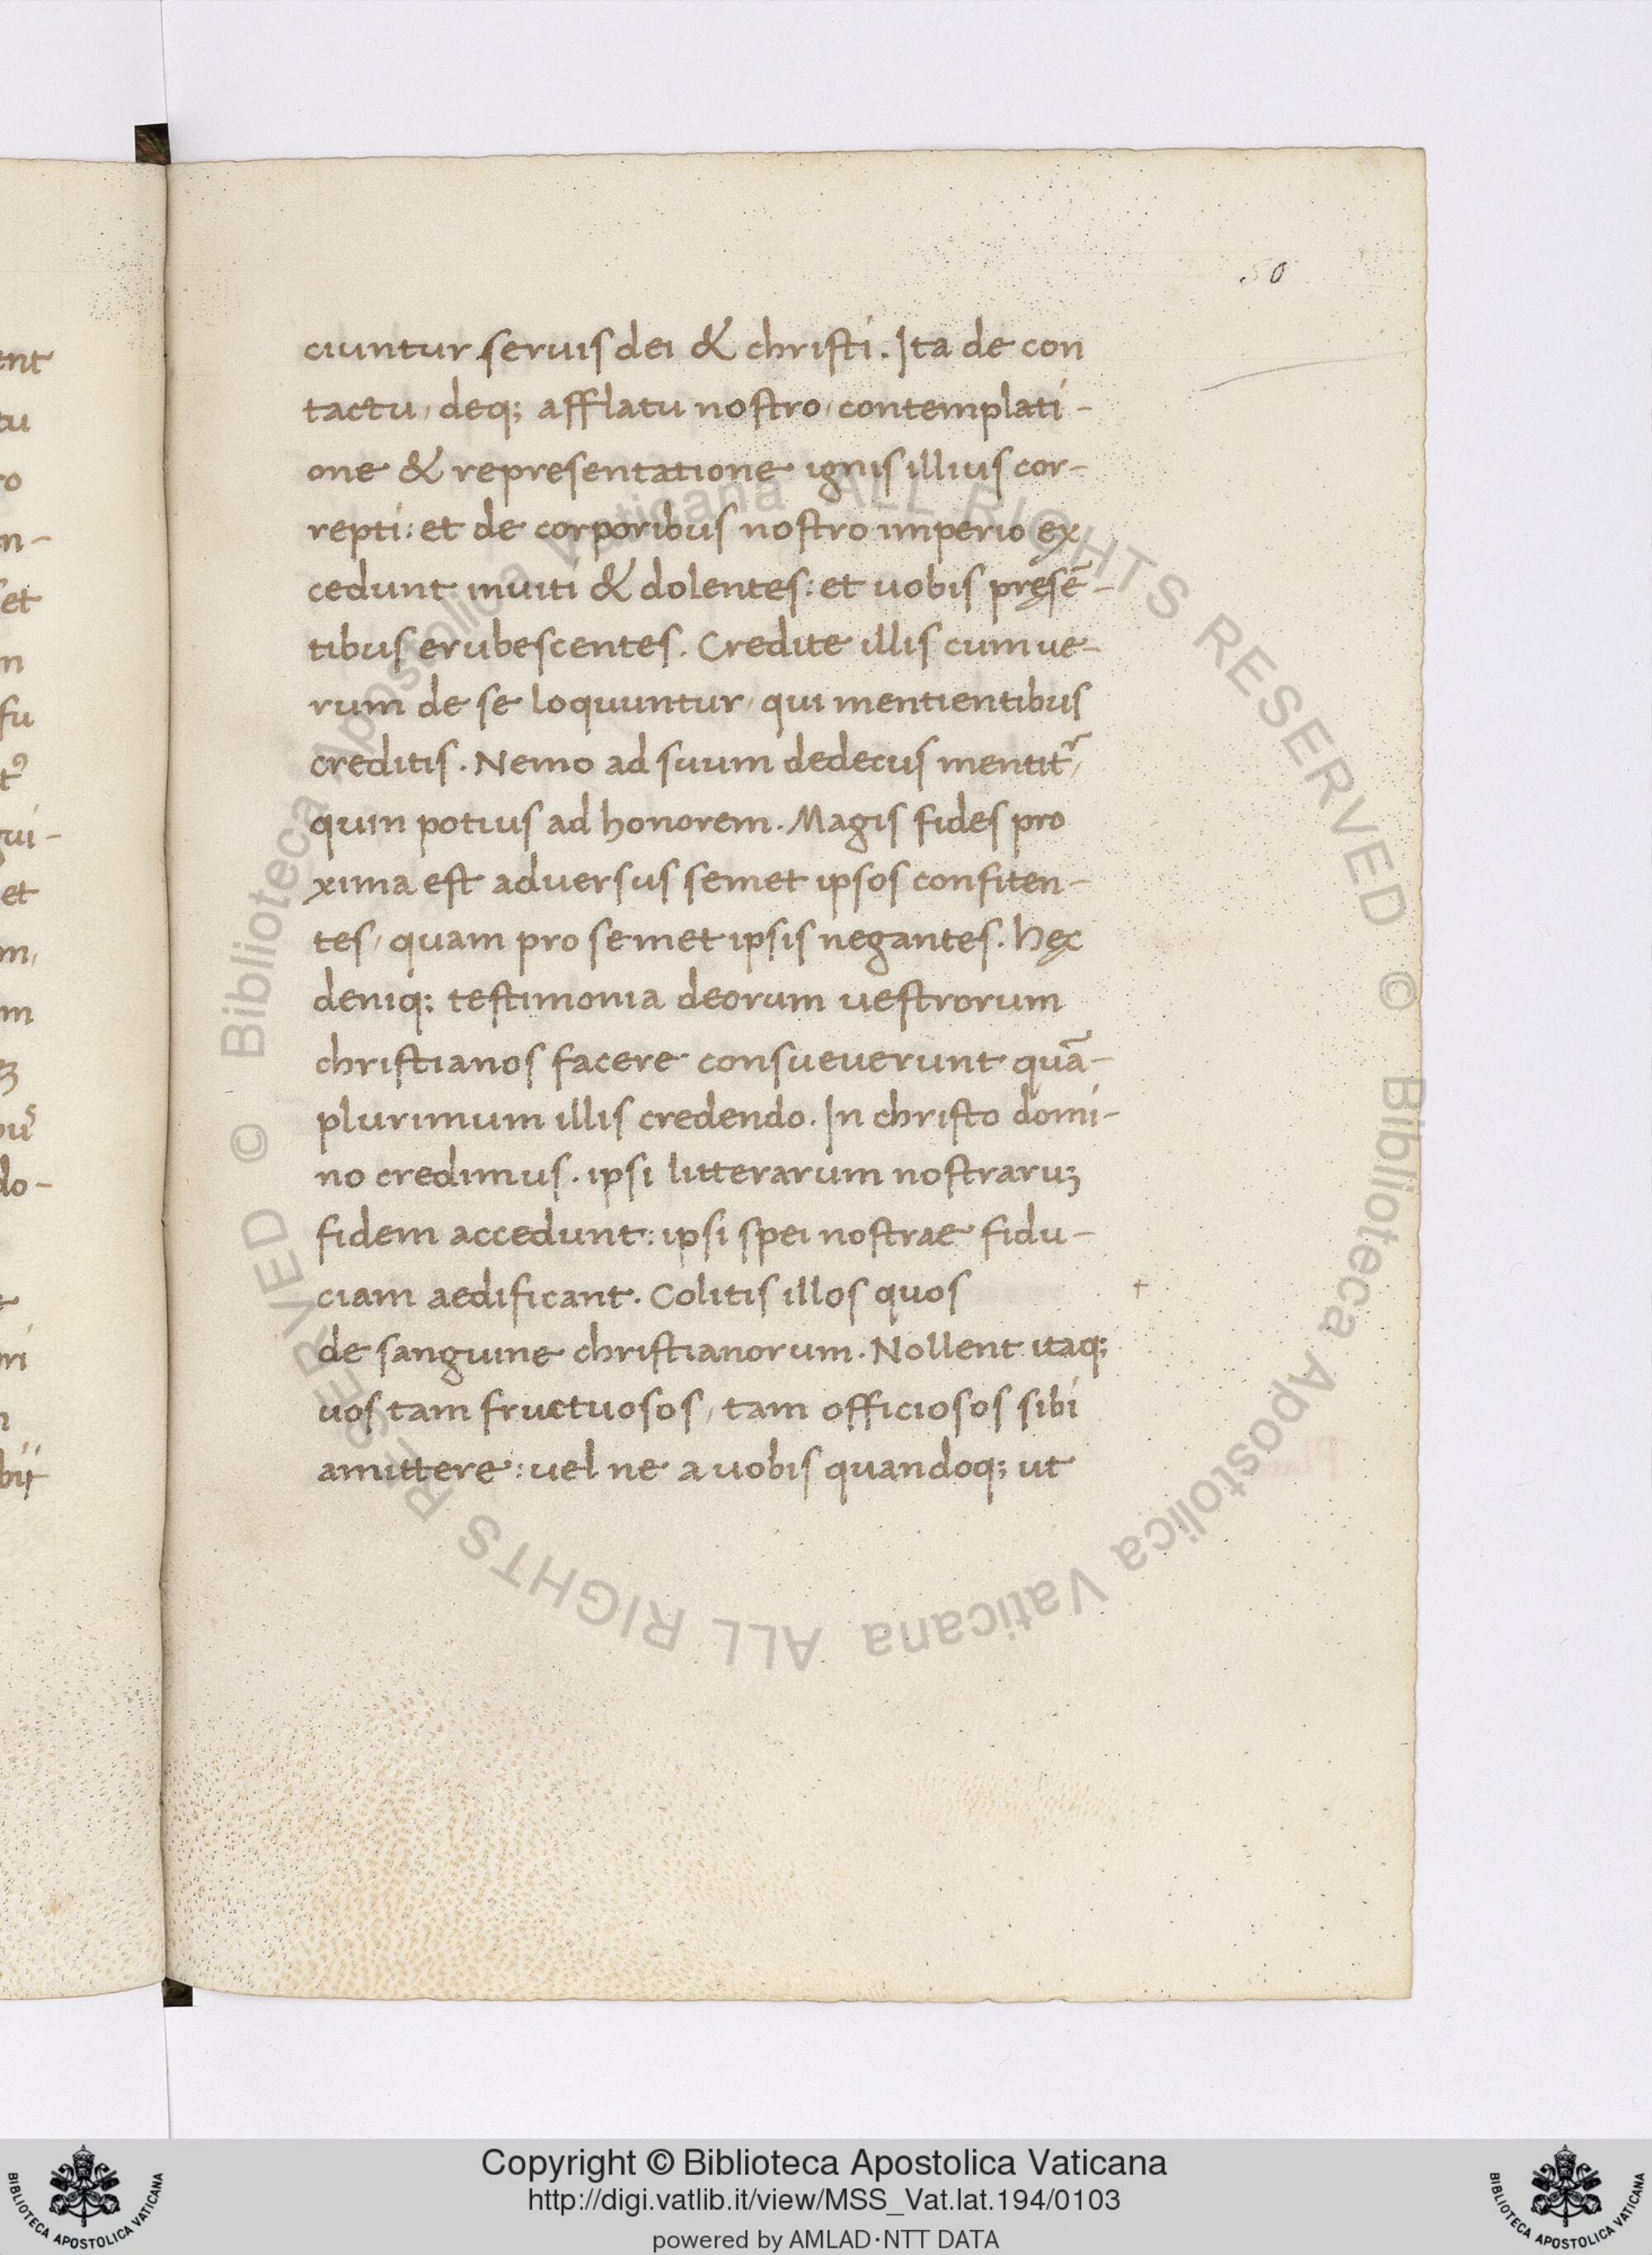 50
ciuntur seruis dei & christi. Ita de con
tactu, deq; afflatu nostro, contemplati-
one & representatione ignis illius cor-
repti: et de corporibus nostro imperio ex
cedunt inuiti & dolentes: et uobis pręsē-
tibus erubescentes. Credite illis cum ue-
rum de se loquuntur, qui mentientibus
creditis. Nemo ad suum dedecus mentitʳ,
quin potius ad honorem. Magis fides pro
xima est aduersus semet ipsos confiten-
tes, quam pro semet ipsis negantes. hęc
deniq; testimonia deorum uestrorum
christianos facere consueuerunt quā-
plurimum illis credendo. In christo domi-
no credimus. ipsi litterarum nostraruꝫ
fidem accedunt: ipsi spei nostrae fidu-
ciam aedificant. Colitis illos quos +
de sanguine christianorum. Nollent itaq;
uos tam fructuosos, tam officiosos sibi
amittere: uel ne a uobis quandoq; ut
© Biblioteca Apostolica Vaticana ALL RIGHTS RESERVED
© Biblioteca Apostolica Vaticana ALL RIGHTS RESERVED
Copyright © Biblioteca Apostolica Vaticana
http://digi.vatlib.it/view/MSS_Vat.lat.194/0103
powered by AMLAD·NTT DATA
BIBLIOTECA APOSTOLICA VATICANA
BIBLIOTECA APOSTOLICA VATICANA